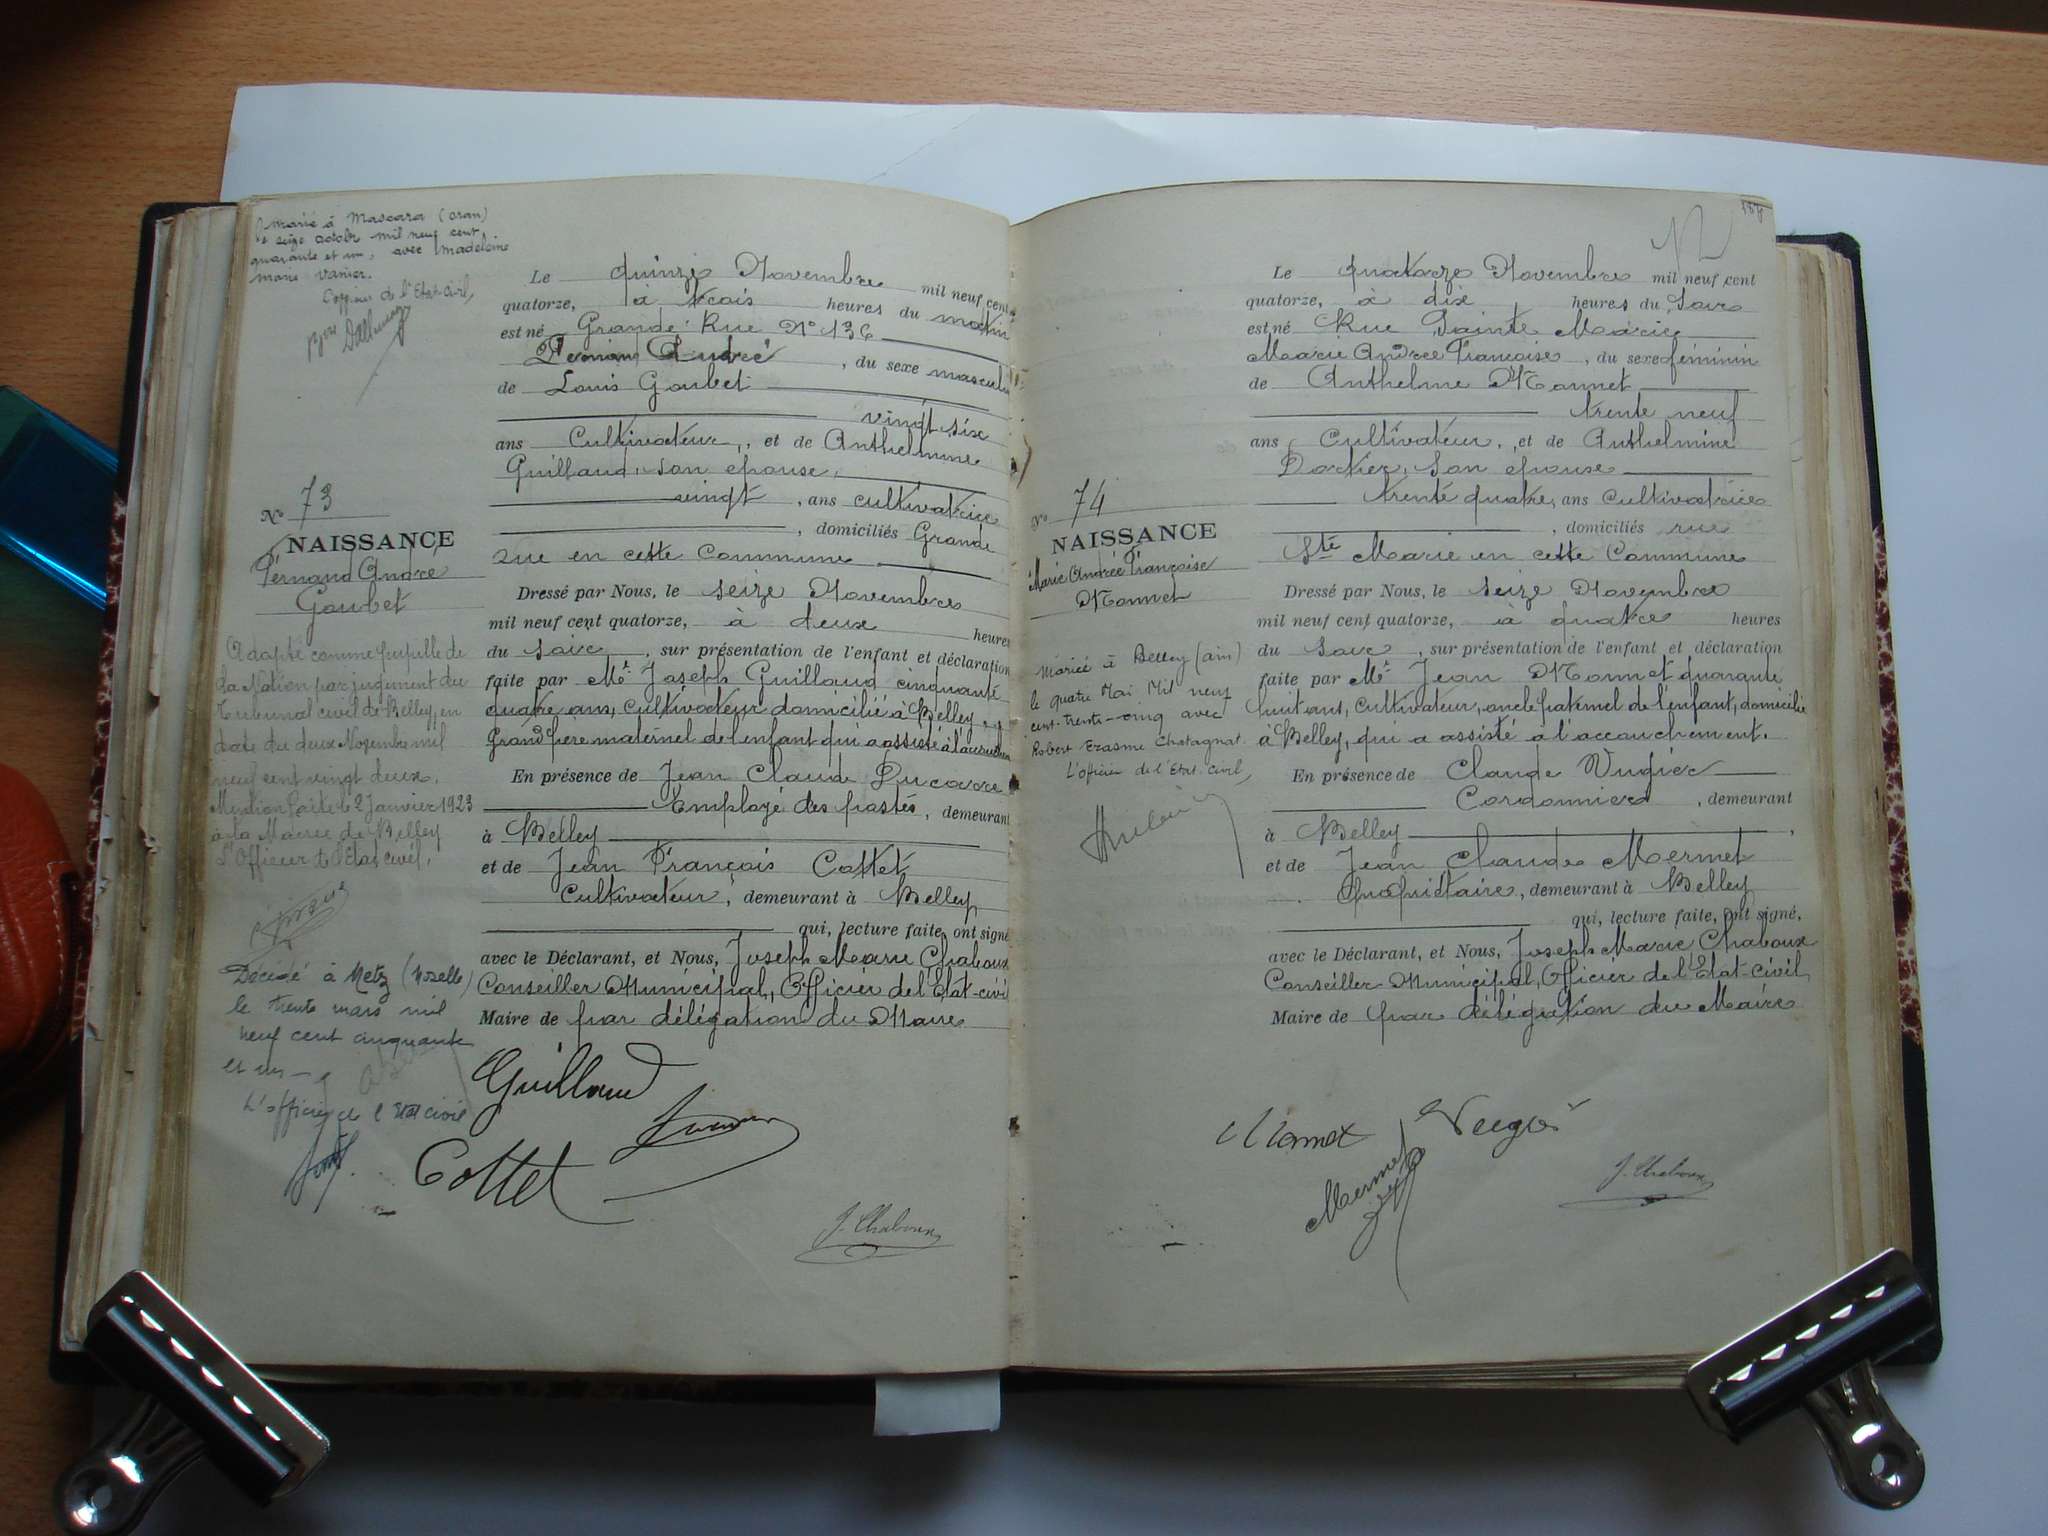 marié à Mascara (Oran)
le seize octobr mil neuf cent
quarante et un, avec Madeleine
Marie Vanier.
L'officier de l'Etat-Civil,
N° 73
NAISSANCE
Fernand André
Goubet
Adopté comme pupille de
la Nation par jugement du
Tribunal civil de Belley, en
date du deux Novembre mil
neuf cent vingt deux.
Mention faite le 2 Janvier 1923
à la Mairie de Belley
L'Officier de l'Etat civil,
Décédé à Metz (Moselle)
le trente mars mil
neuf cent cinquante
et un
L'officier de l'Etat civil
Le quinze Novembre mil neuf cent
quatorze, à trois heures du matin
est né Grande Rue N° 136
Fernand André, du sexe masculin
de Louis Goubet
vingt six
ans Cultivateur, et de Anthelmine
Guillaud, son épouse,
vingt, ans cultivatrice
, domiciliés Grande
rue en cette Commune
Dressé par Nous, le seize Novembre
mil neuf cent quatorze, à deux heures
du soir, sur présentation de l'enfant et déclaration
faite par Mr Joseph Guillaud cinquante
quatre ans, cultivateur domicilié à Belley,
Grand père maternel de l'enfant qui a assisté à l'accouchem
En présence de Jean Claude Ducarre
Employé des postes, demeurant
à Belley
et de Jean François Cottet,
Cultivateur, demeurant à Belley
qui, lecture faite, ont signé
avec le Déclarant, et Nous, Joseph Marie Chaboux
Conseiller Municipal, Officier de l'Etat-civil
Maire de par délégation du Maire
Guillaud
Cottet
J. Chaboux
N° 74
NAISSANCE
Marie Andrée Françoise
Monnet
Mariée à Belley (Ain)
le quatre Mai Mil neuf
cent-trente-cinq avec
Robert Erasme Chatagnat.
L'officier de l'Etat Civil,
Le quatorze Novembre mil neuf cent
quatorze, à dix heures du soir
est né Rue Sainte Marie
Marie Andrée Françoise, du sexe féminin
de Anthelme Monnet
trente neuf
ans Cultivateur, et de Anthelmine
Dortier, son épouse
trente quatre, ans cultivatrice
, domiciliés rue
Ste Marie en cette Commune
Dressé par Nous, le seize Novembre
mil neuf cent quatorze, à quatre heures
du soir, sur présentation de l'enfant et déclaration
faite par Mr Jean Monnet quarante
huit ans, cultivateur, oncle paternel de l'enfant, domicilié
à Belley, qui a assisté à l'accouchement.
En présence de Claude Vugier
Cordonnier, demeurant
à Belley,
et de Jean Claude Mermet
Propriétaire, demeurant à Belley
qui, lecture faite, ont signé.
avec le Déclarant, et Nous, Joseph Marie Chaboux
Conseiller Municipal, Officier de l'Etat-civil,
Maire de par délégation du Maire
Monnet
Mermet
J. Chaboux